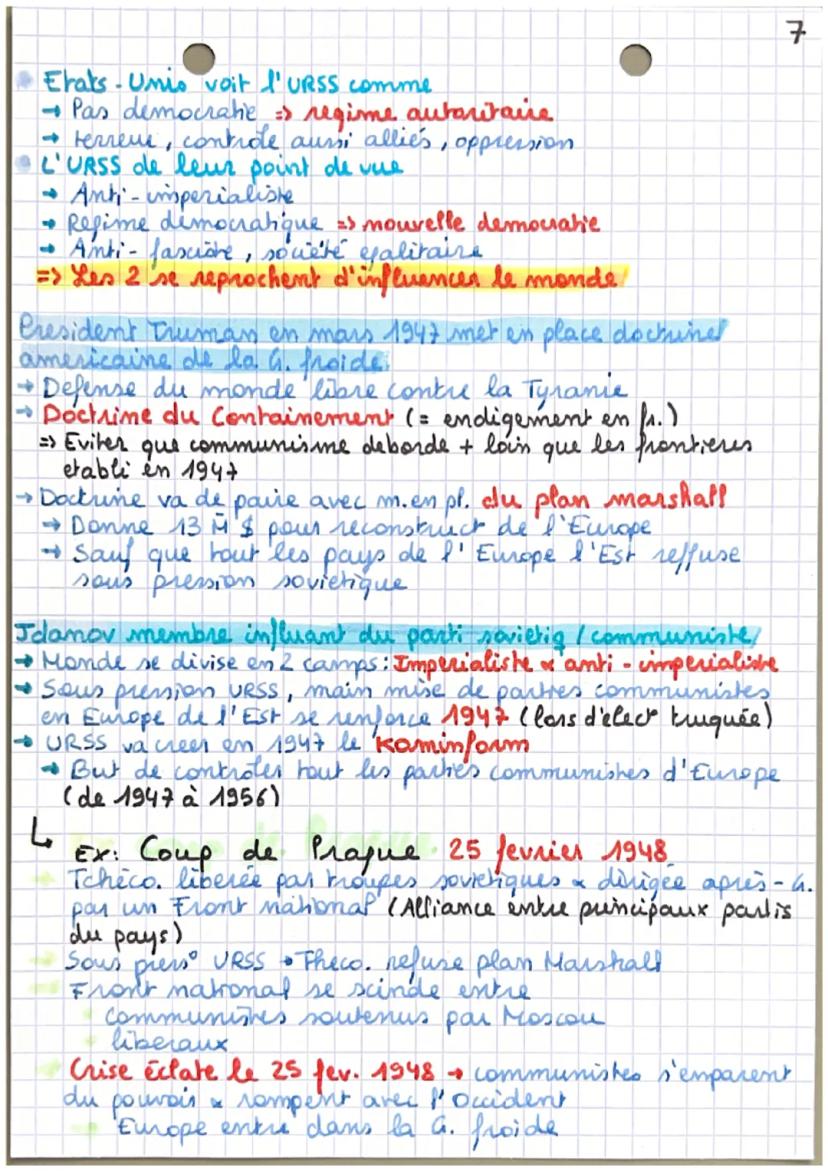 7
Etats-Unis voit l'URSS comme
→ Pas democratie => regime autoritaire
→ terreur, controle aussi alliés, oppression
L'URSS de leur point de vue
→ Anti-imperialiste
→ Regime démocratique => nouvelle democratie
→ Anti-fasciste, société egalitaire
=> Les 2 se reprochent d'influences le monde
President Truman en mars 1947 met en place doctrine
americaine de la G. froide.
→ Defense du monde libre contre la Tyranie
→ Doctrine du Containement (= endigement en fr.)
=> Eviter que communisme deborde + loin que les frontieres
etabli en 1947
→ Doctrine va de paire avec m.en pl. du plan marshall
→ Donne 13 M $ pour reconstruct de l'Europe
→ Sauf que tout les pays de l'Europe l'Est reffuse
sous pression sovietique
Jdanov membre influant du parti sovietiq / communiste
→ Monde se divise en 2 camps: Imperialiste & anti-imperialiste
→ Sous pression URSS, main mise de parties communistes
en Europe de l'Est se renforce 1947 (lors d'elect° truquée)
→ URSS va creer en 1947 le Kominform
→ But de contrôler tout les parties communistes d'Europe
(de 1947 à 1956)
↳ Ex: Coup de Prague 25 fevrier 1948
Tchéco. liberée par troupes sovietiques & dirigée après-G.
par un Front national (Alliance entre principaux partis
du pays)
Sous press° URSS → Theco. refuse plan Marshall
Front national se scinde entre
communistes soutenus par Moscou
liberaux
Crise éclate le 25 fev. 1948 → communistes s'emparent
du pouvoir & rompent avec l'Occident
Europe entre dans la G. froide